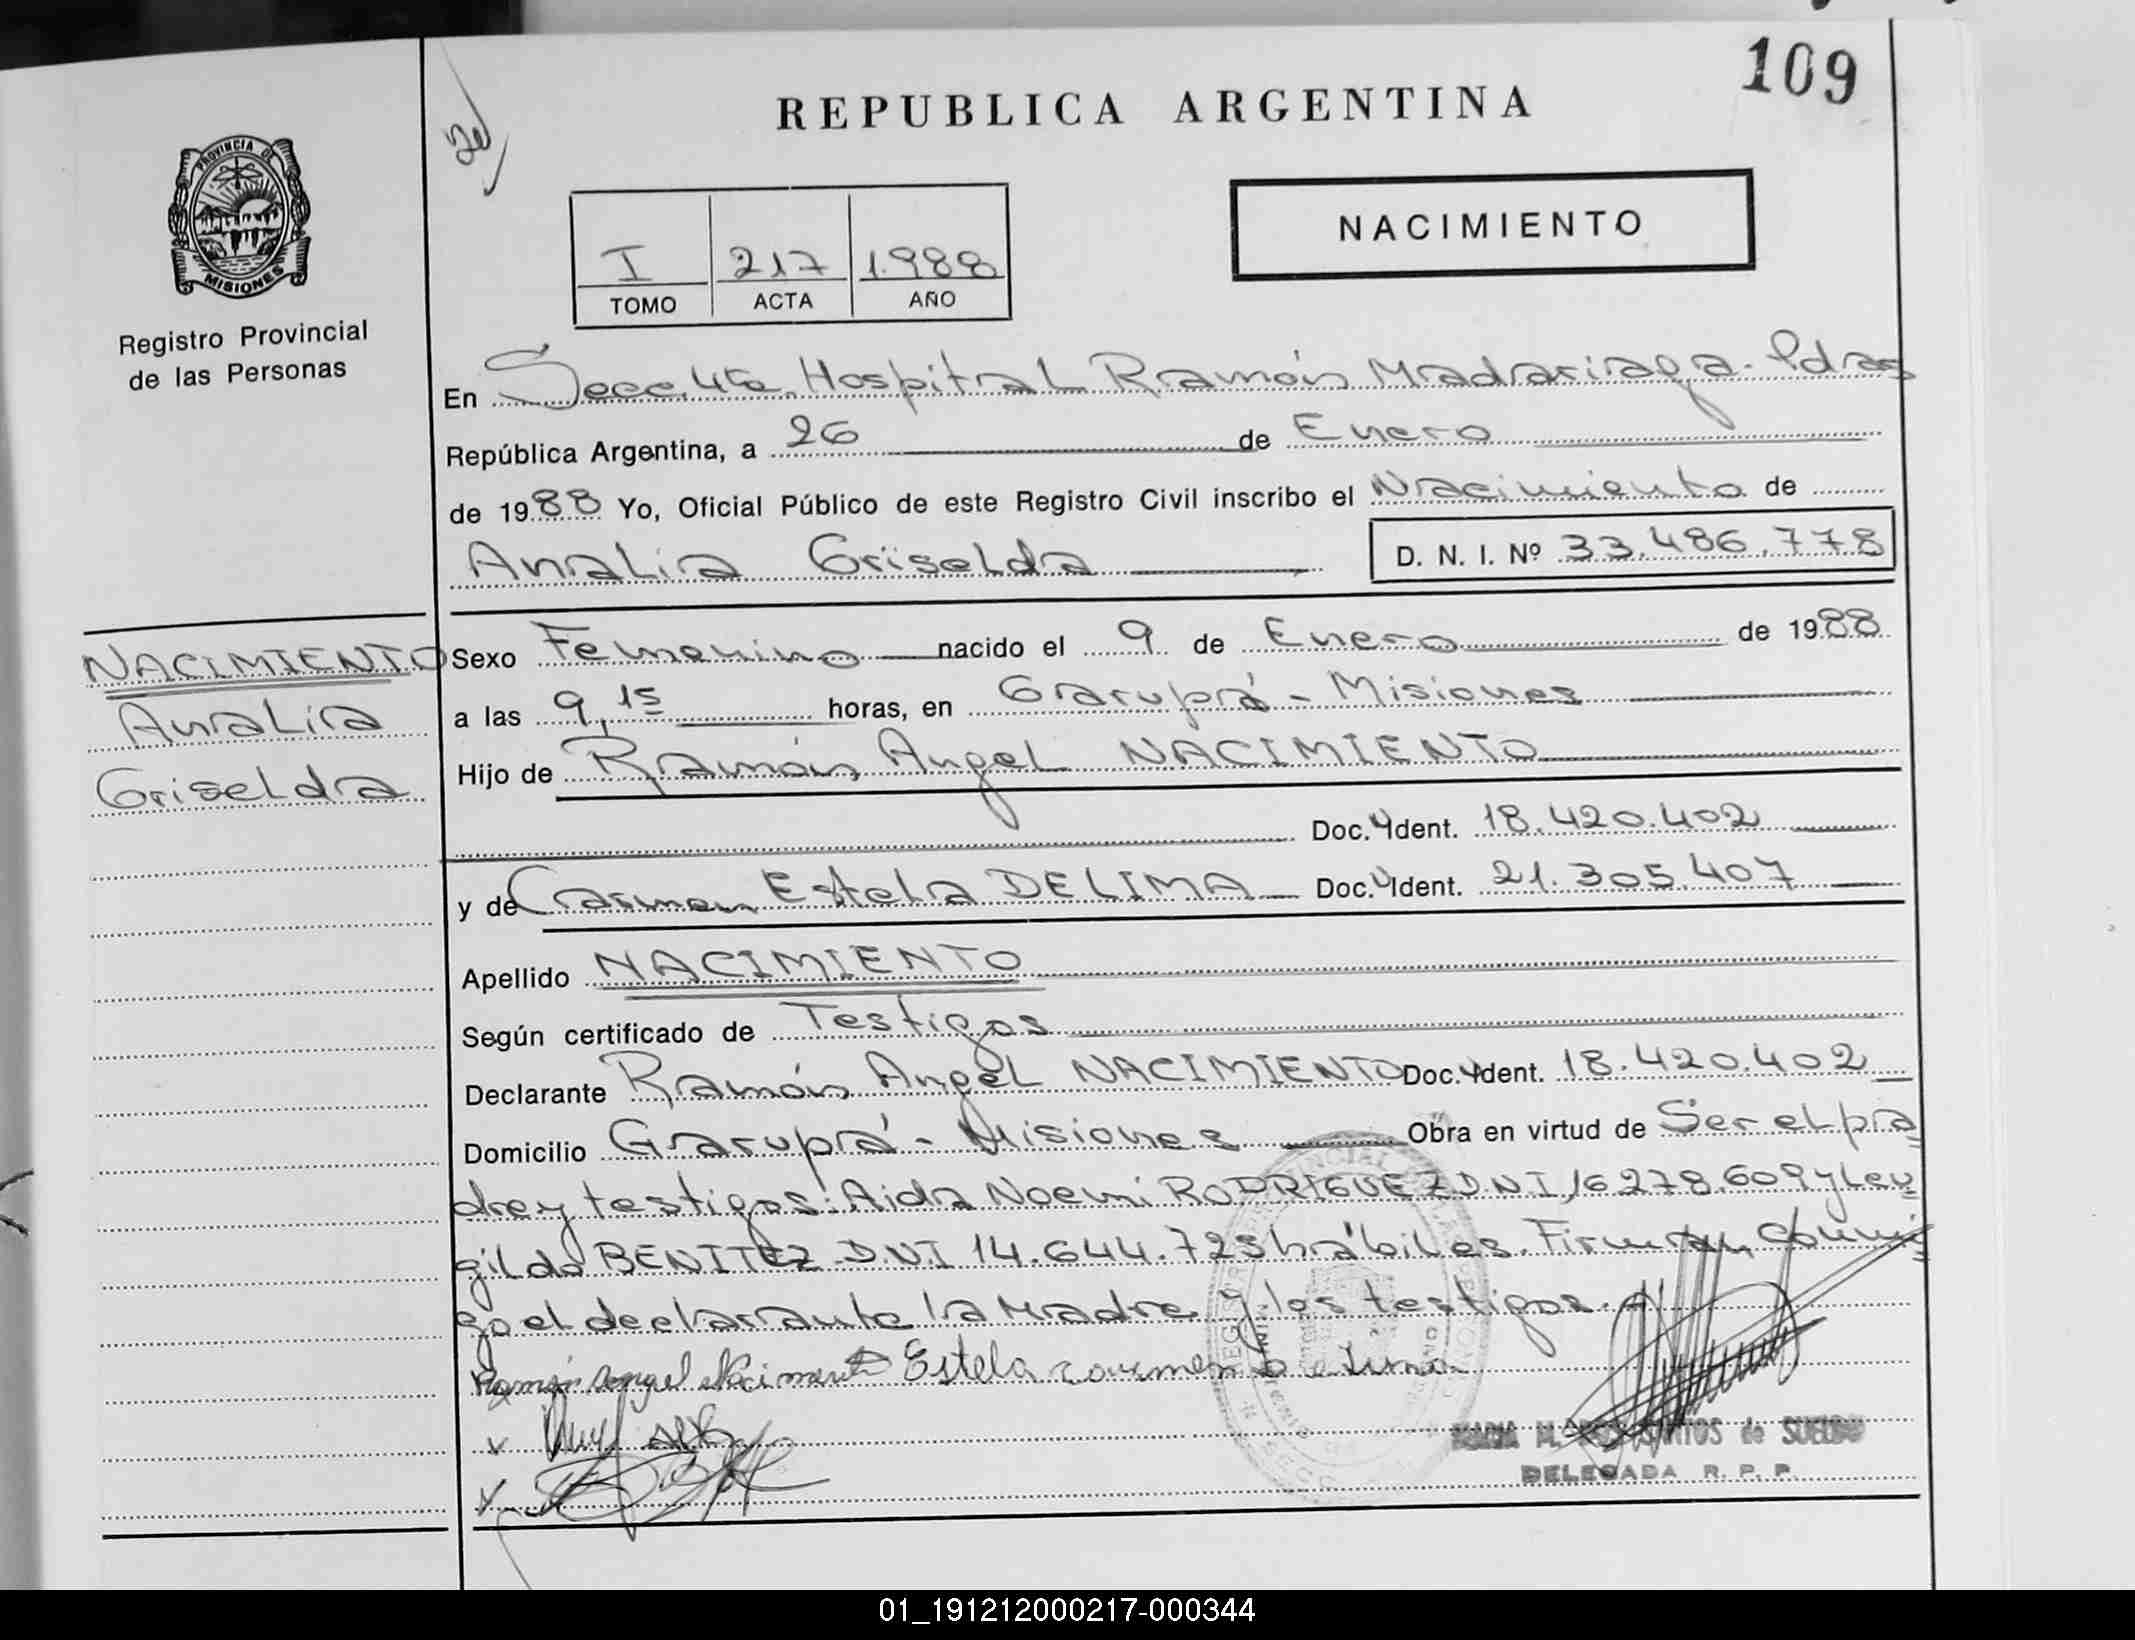 109
REPUBLICA ARGENTINA
PROVINCIA DE
MISIONES
Registro Provincial
de las Personas
NACIMIENTO
I 217 1.988
TOMO ACTA AÑO
En Secc. 4ta. Hospital Ramón Madariaga. Pdas
República Argentina, a 26 de Enero
de 1988 Yo, Oficial Público de este Registro Civil inscribo el Nacimiento de
Analia Griselda D. N. I. Nº 33.486.778
NACIMIENTO
Analia
Griselda
Sexo Femenino nacido el 9 de Enero de 1988
a las 9,15 horas, en Garupá - Misiones
Hijo de Ramón Angel NACIMIENTO
Doc. Ident. 18.420.402
y de Carmen Estela DE LIMA Doc. Ident. 21.305.407
Apellido NACIMIENTO
Según certificado de Testigos
Declarante Ramón Angel NACIMIENTO Doc. Ident. 18.420.402
Domicilio Garupá - Misiones Obra en virtud de Ser el pa
dre y testigos: Aida Noemi RODRIGUEZ D.N.I 16.278.609 y Leu
gildo BENITEZ D.N.I 14.644.725 hábiles. Firman conmi
go el declarante la Madre y los testigos.
Ramón Angel Nacimiento Estela Carmen de Lima
de SUELDO
DELEGADA R. P. P.
01_191212000217-000344